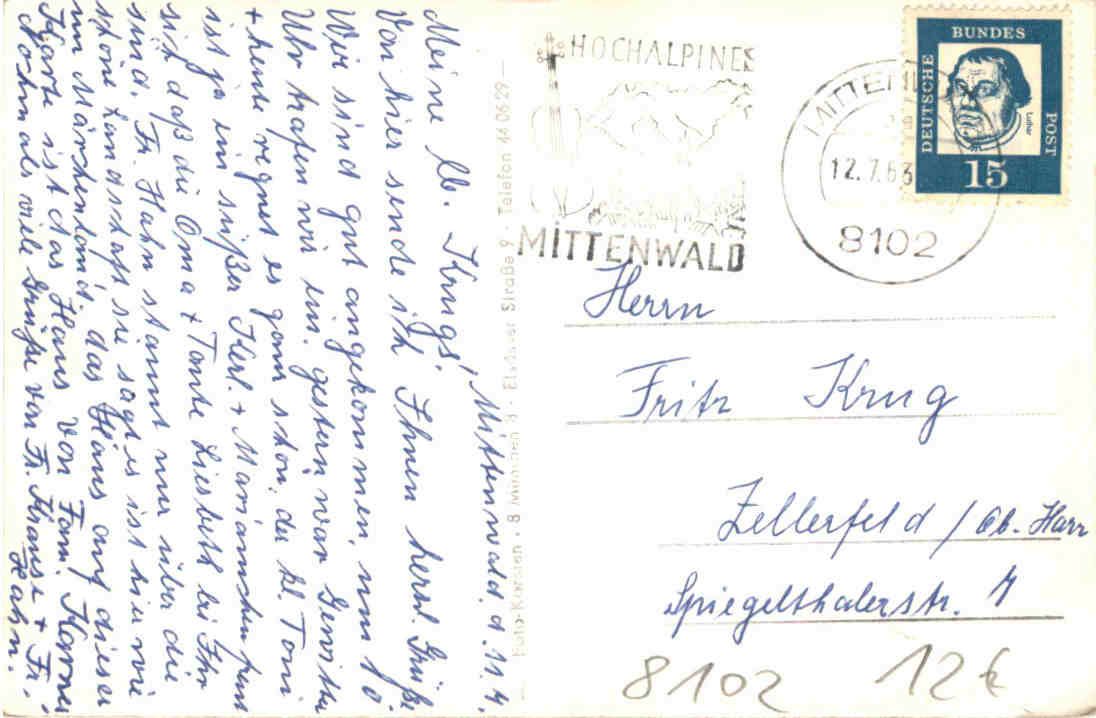 Mittenwald, d. 11. 7.
Meine lb. Krugs,
Von hier sende ich Ihnen herzl. Grüße
Wir sind gut angekommen, um 10
Uhr trafen wir ein. gestern war Gewitter
+ heute regnet es ganz schön, der kl. Toni
ist ja ein süßer Kerl. + Mariannchen freut
sich daß die Oma + Tante Liesbeth bei Ihr
sind. Fr. Hahn staunt nur über die
schöne Landschaft sie sagt es ist hier wie
im Märchenland. das Haus auf dieser
Karte ist das Haus von Fam. Karner
Nochmals viele Grüße von Fr. Krause + Fr.
Hahn.
Foto-Kirsten · 8 München 8 · Elsässer Straße 9 · Telefon 44 06 29
HOCHALPINES
MITTENWALD
MITTENW
12.7.63
8102
DEUTSCHE
BUNDES
POST
Luther
15
Herrn
Fritz Krug
Zellerfeld / Ob. Harz
Spiegelthalerstr.
8102 12€